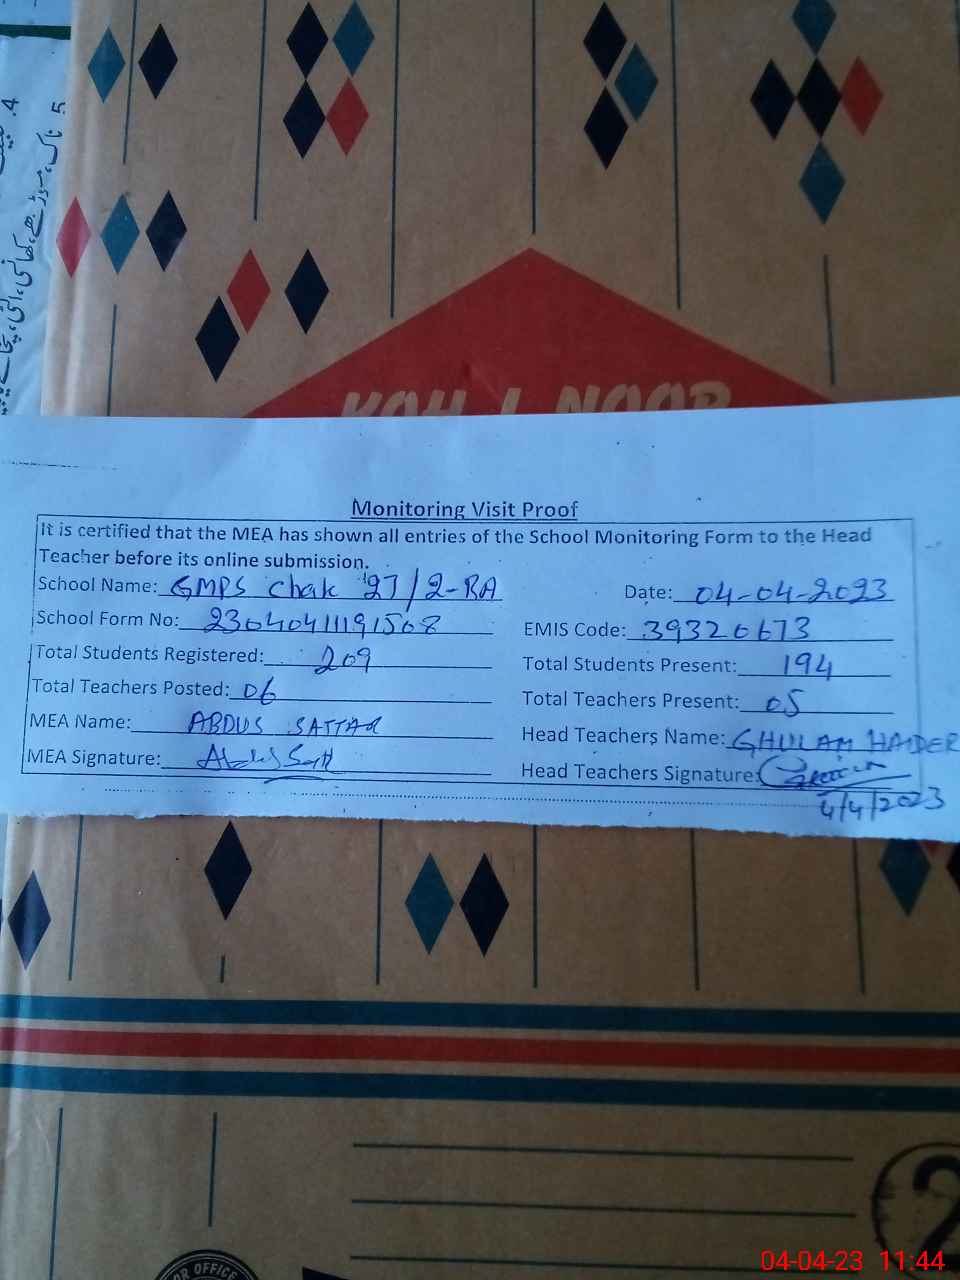 5. ناک، سوڑھے، کھانسی، الٹی،
4.
KOH-I-NOOR
Monitoring Visit Proof
It is certified that the MEA has shown all entries of the School Monitoring Form to the Head
Teacher before its online submission.
School Name: GMPS Chak 27/2-RA Date: 04-04-2023
School Form No: 23040411191508 EMIS Code: 39320673
Total Students Registered: 209 Total Students Present: 194
Total Teachers Posted: 06 Total Teachers Present: 05
MEA Name: ABDUS SATTAR Head Teachers Name: GHULAM HAIDER
MEA Signature: Head Teachers Signature:
4/4/2023
2
OR OFFICE
04-04-23 11:44